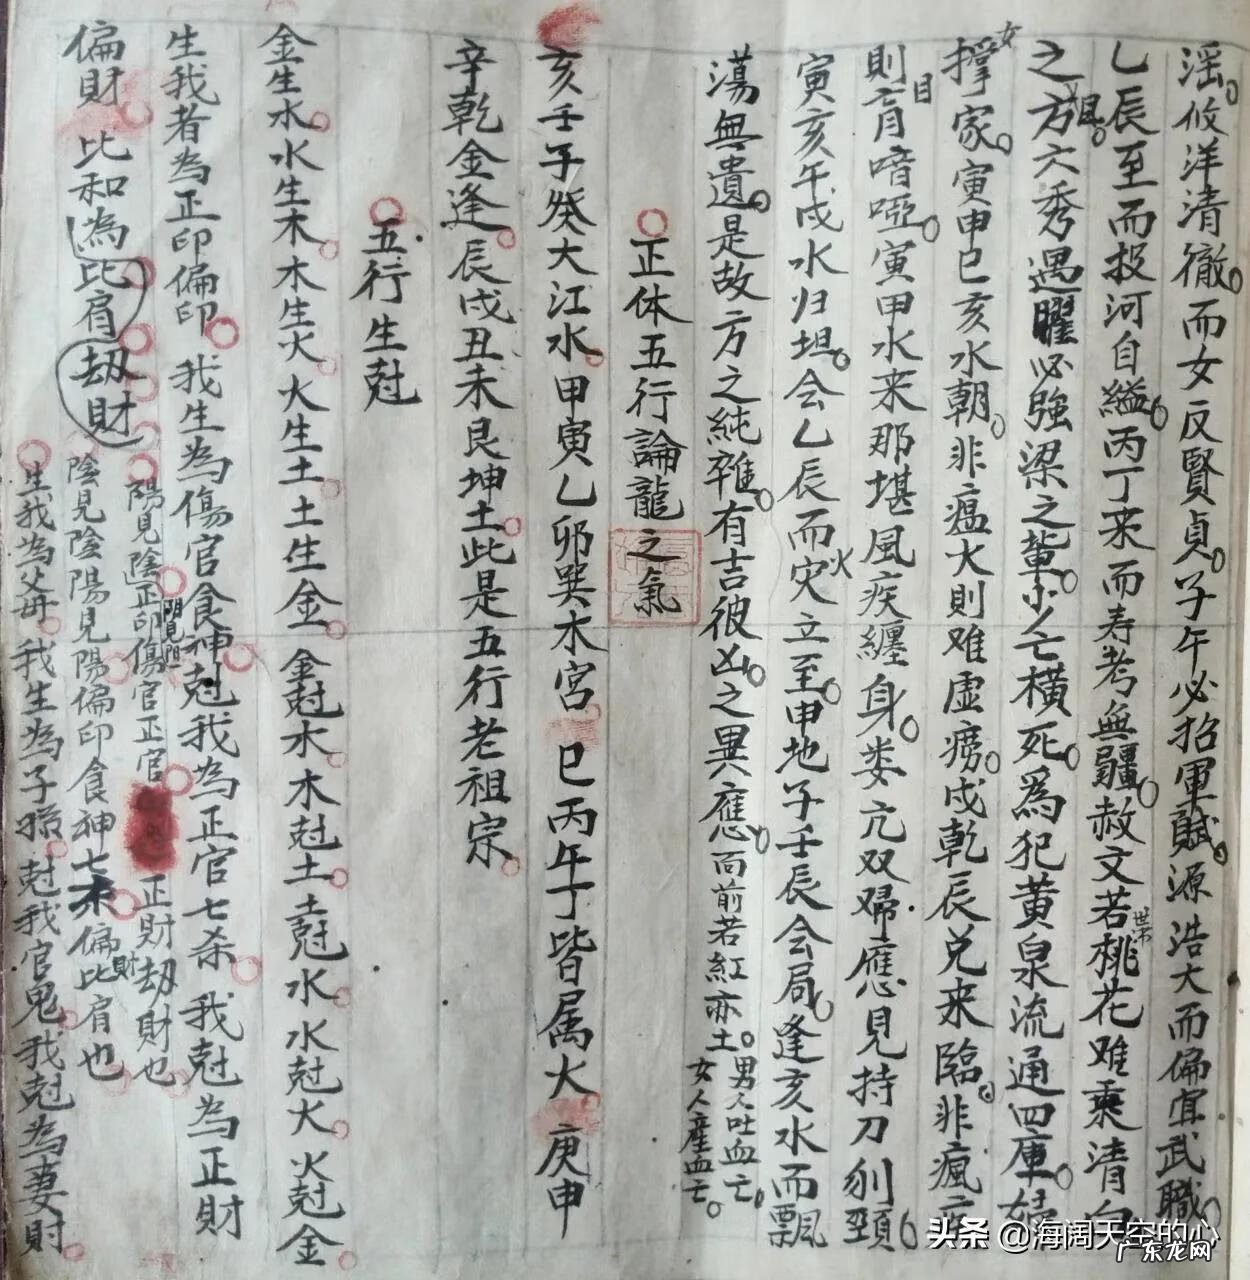 淫攸洋清徹而女反賢貞子午必招軍賦源浩大而偏宜武職
乙辰至而投河自縊丙丁来而寿考無疆赦文若桃花难乘清白
之方六秀遇曜必強梁之輩少亡横死為犯黄泉流通四庫婦
女
撑家寅申巳亥水朝非瘟火則难虚痨戌乾辰兑来臨非瘋疾
則盲喑啞寅甲水来那堪風疾纏身娄亢双婦應見持刀刎頸
目
寅亥午戌水归坦会乙辰而灾立至申地子壬辰会局逢亥水而飄
火
蕩無遺是故方之純雜有吉彼凶之異應面前若紅赤土男人吐血亡
女人産血亡
正体五行論龍之氣
亥壬子癸大江水甲寅乙卯巽木宮巳丙午丁皆属火庚申
辛乾金逢辰戌丑未艮坤土此是五行老祖宗
五行生尅
金生水水生木木生火火生土土生金金尅木木尅土土尅水水尅火火尅金
生我者為正印偏印我生為傷官食神尅我為正官七杀我尅為正財
偏財比和為比肩劫財
陽見陰正印傷官正官正財劫財也
陰見陰陽見陽偏印食神七杀偏財比肩也
生我為父母我生為子孫尅我官鬼我尅為妻財
头条 @海阔天空的心
广东龙网